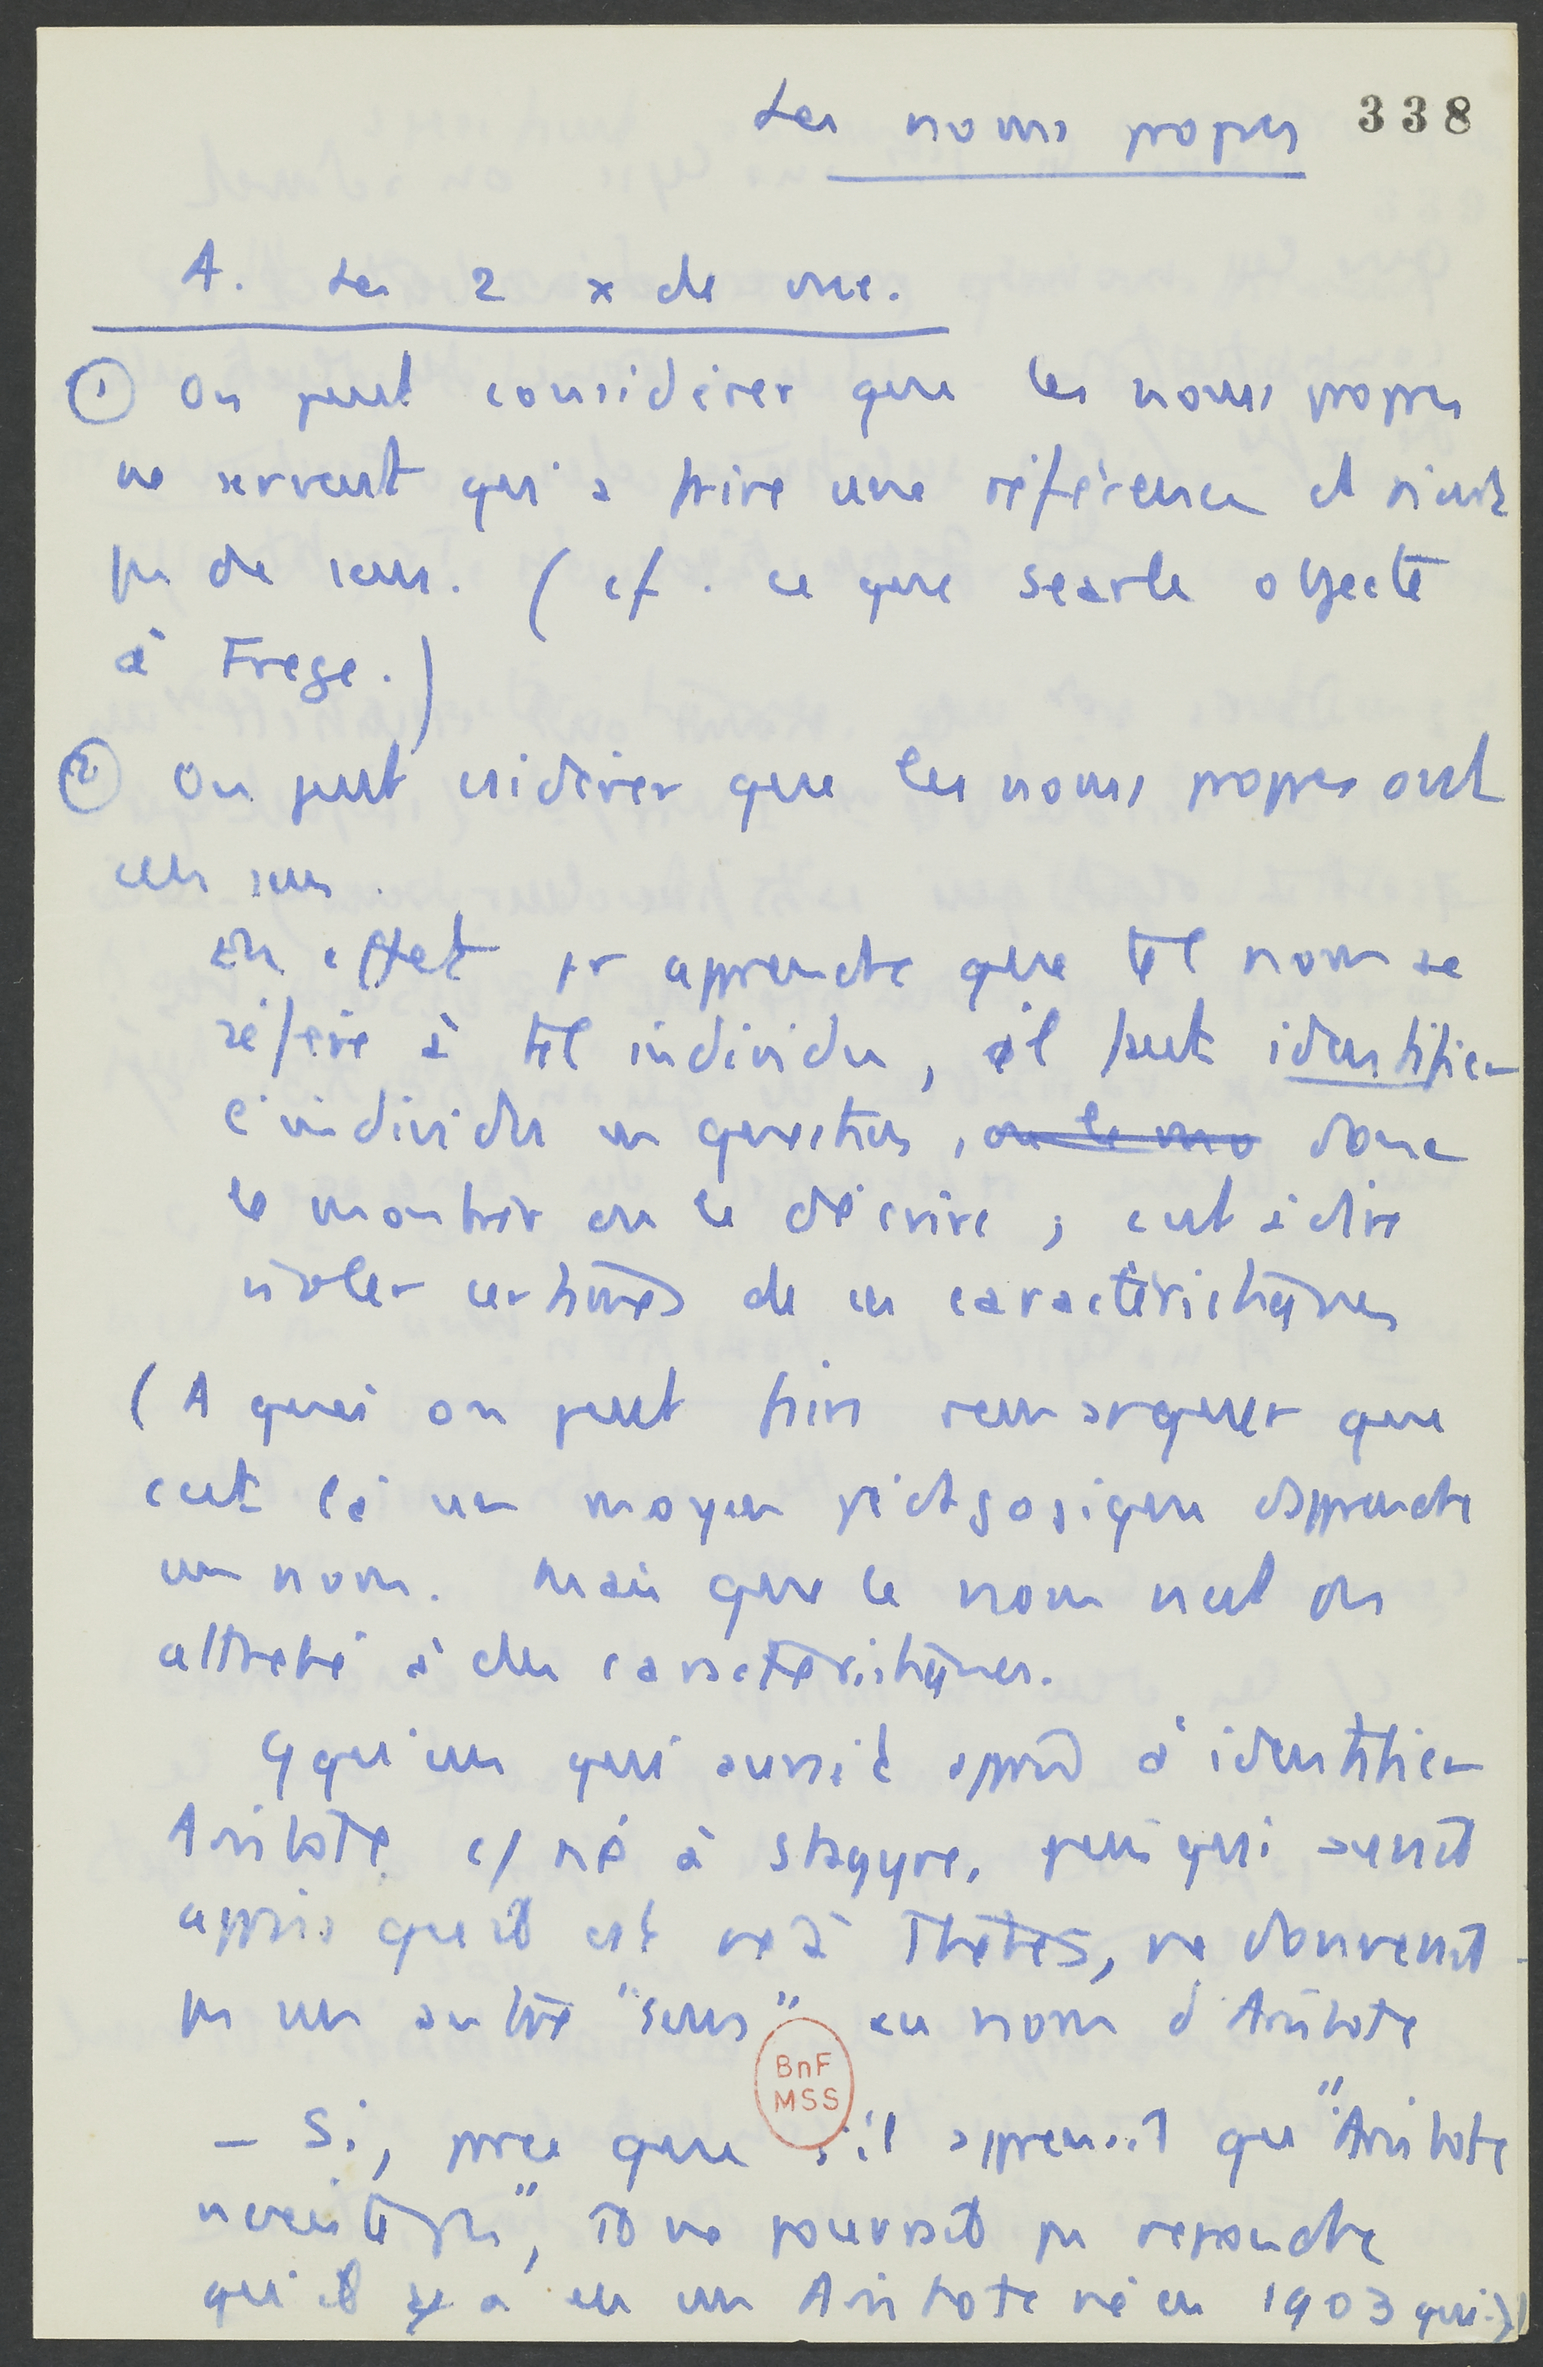 Les noms propres 338
A. Les 2 x de vue.
① On peut considérer que les noms propres
ne servent qu'à faire une référence et n'ont
pas de sens. (cf. ce que Searle objecte
à Frege.)
② On peut csidérer que les noms propres ont
un sens.
En effet pr apprendre que tel nom se
réfère à tel individu, il faut identifier
l'individu en question, ou le mo donc
le montrer ou le décrire ; c'est à dire
isoler certaines de ces caractéristiques
(A quoi on peut faire remarquer que
c'est là un moyen pédagogique d'apprendre
un nom. Mais que le nom n'est pas
attaché à des caractéristiques.
Qqu'un qui aurait appris à identifier
Aristote c/ né à Stagyre, puis qui aurait
appris qu'il est né à Thèbes, ne donnerait
pas un autre "sens" au nom d'Aristote
BnF
MSS
– Si, parce que s'il apprenait qu'"Aristote
n'existe pas", il ne pourrait pas répondre
qu'il y a eu un Aristote né en 1903 qui..)